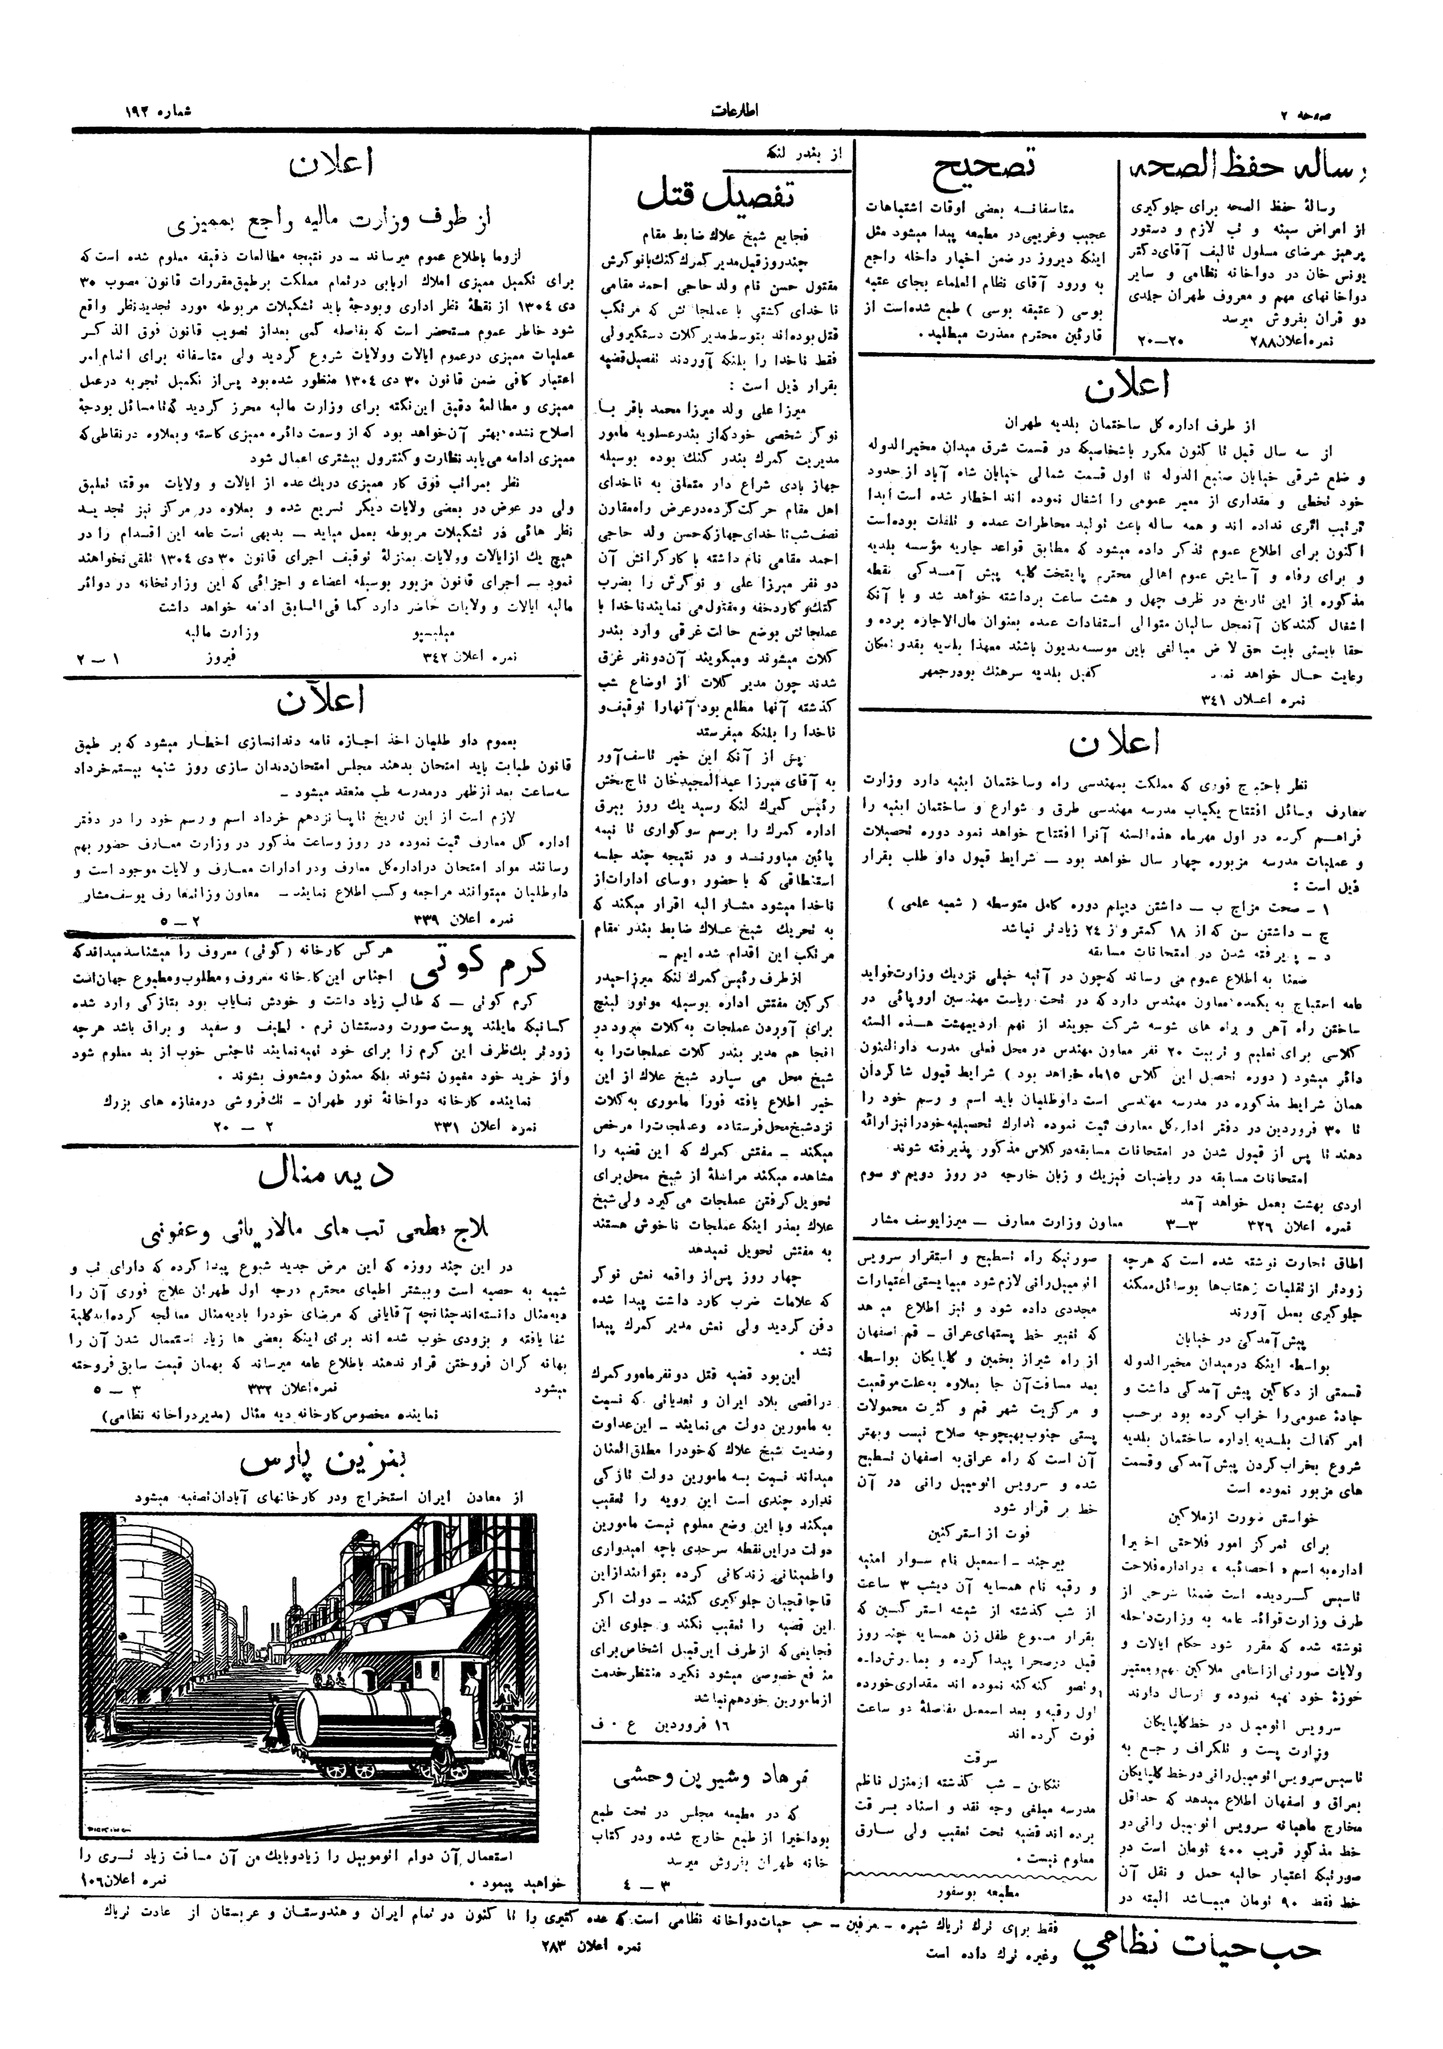 صفحه ۲
اطلاعات
شماره ۱۹۲
رساله حفظ الصحه
رسالهٔ حفظ الصحه برای جلوگیری
از امراض سینه و تب لازم و دستور
پرهیز مرضای مسلول تالیف آقای دکتر
یونس خان در دواخانه نظامی و سایر
دواخانهای مهم و معروف طهران جلدی
دو قران بفروش میرسد
نمره اعلان ۲۸۸ ۲۰—۲۰
تصحیح
متاسفانه بعضی اوقات اشتباهات
عجیب و غریبی در مطبعه پیدا میشود مثل
اینکه دیروز در ضمن اخبار داخله راجع
به ورود آقای نظام العلماء بجای عتبه
بوسی ( عتیقه بوسی ) طبع شده است از
قارئین محترم معذرت میطلبد.
اعلان
از طرف اداره کل ساختمان بلدیه طهران
از سه سال قبل تا کنون مکرر باشخاصیکه در قسمت شرق میدان مخبرالدوله
و ضلع شرقی خیابان صنیع الدوله تا اول قسمت شمالی خیابان شاه آباد از حدود
خود تخطی و مقداری از معبر عمومی را اشغال نموده اند اخطار شده است ابدا
ترتیب اثری نداده اند و همه ساله باعث تولید مخاطرات عمده و تلفات بوده است
اکنون برای اطلاع عموم تذکر داده میشود که مطابق قواعد جاریه مؤسسه بلدیه
و برای رفاه و آسایش عموم اهالی محترم پایتخت کلیه پیش آمدگی نقطه
مذکوره از این تاریخ در ظرف چهل و هشت ساعت برداشته خواهد شد و با آنکه
اشغال کنندگان آنمحل سالیان متوالی استفادات عمده بعنوان مال الاجاره برده و
حقا بایستی بابت حق الارض مبالغی باین موسسه مدیون باشند معهذا بلدیه بقدر امکان
رعایت حال خواهد نمود کفیل بلدیه سرهنگ بوذرجمهر
نمره اعلان ۳۴۱
اعلان
نظر باحتیاج فوری که مملکت بمهندسی راه و ساختمان ابنیه دارد وزارت
معارف وسائل افتتاح یکباب مدرسه مهندسی طرق و شوارع و ساختمان ابنیه را
فراهم کرده در اول مهرماه هذه السنه آنرا افتتاح خواهد نمود دوره تحصیلات
و عملیات مدرسه مزبوره چهار سال خواهد بود — شرایط قبول داو طلب بقرار
ذیل است :
۱ – صحت مزاج ب – داشتن دیپلم دوره کامل متوسطه ( شعبه علمی )
ج – داشتن سن که از ۱۸ کمتر و از ۲۴ زیادتر نباشد
د – پذیرفته شدن در امتحانات مسابقه
ضمنا به اطلاع عموم می رساند که چون در آتیه خیلی نزدیک وزارت فواید
عامه احتیاج به یکعده معاون مهندس دارد که در تحت ریاست مهندسین اروپائی در
ساختن راه آهن و راه های شوسه شرکت جویند از نهم اردیبهشت هذه السنه
کلاسی برای تعلیم و تربیت ۲۰ نفر معاون مهندس در محل فعلی مدرسه دارالفنون
دائر میشود ( دوره تحصیل این کلاس ۱۵ ماه خواهد بود ) شرایط قبول شاگردان
همان شرایط مذکوره در مدرسه مهندسی است داوطلبان باید اسم و رسم خود را
تا ۳۰ فروردین در دفتر اداره کل معارف ثبت نموده تدارک تحصیلیه خود را نیز ارائه
دهند تا پس از قبول شدن در امتحانات مسابقه در کلاس مذکور پذیرفته شوند.
امتحانات مسابقه در ریاضیات فیزیک و زبان خارجه در روز دویم و سوم
اردی بهشت بعمل خواهد آمد
نمره اعلان ۳۲۶ ۳—۳ معاون وزارت معارف — میرزا یوسف مشار
اطاق تجارت نوشته شده است که هرچه
زودتر از تقلبات زهتابها بوسائل ممکنه
جلوگیری بعمل آورند
پیش آمدگی در خیابان
بواسطه اینکه در میدان مخبرالدوله
قسمتی از دکاکین پیش آمدگی داشت و
جادهٔ عمومی را خراب کرده بود برحسب
امر کفالت بلدیه اداره ساختمان بلدیه
شروع بخراب کردن پیش آمدگی و قسمت
های مزبور نموده است
خواستن صورت از ملاکین
برای تمرکز امور فلاحتی اخیرا
اداره به اسم « احصائیه » در اداره فلاحت
تاسیس گردیده است ضمنا شرحی از
طرف وزارت فوائد عامه به وزارت داخله
نوشته شده که مقرر شود حکام ایالات و
ولایات صورتی از اسامی ملاکین مهم و معتبر
حوزهٔ خود تهیه نموده و ارسال دارند
سرویس اتومبیل در خط گلپایگان
وزارت پست و تلگراف راجع به
تاسیس سرویس اتومبیل رانی در خط گلپایگان
بعراق و اصفهان اطلاع میدهد که حداقل
مخارج ماهیانه سرویس اتومبیل رانی در
خط مذکور قریب ۴۰۰ تومان است در
صورتیکه اعتبار حالیه حمل و نقل آن
خط فقط ۹۰ تومان میباشد البته در
صورتیکه راه تسطیح و استقرار سرویس
اتومبیل رانی لازم شود میبایستی اعتبارات
مجددی داده شود و نیز اطلاع میدهد
که تغییر خط پستهای عراق – قم اصفهان
از راه شیراز بخمین و گلپایگان بواسطه
بعد مسافت آن جا بعلاوه به علت موقعیت
و مرکزیت شهر قم و کثرت محمولات
پستی جنوب بهیچوجه صلاح نیست و بهتر
آن است که راه عراق به اصفهان تسطیح
شده و سرویس اتومبیل رانی در آن
خط بر قرار شود
فوت از استرکنین
بیرجند – اسمعیل نام سوار امنیه
و رقیه نام همسایه آن دیشب ۳ ساعت
از شب گذشته از شیشه استرکنین که
بقرار مسموع طفل زن همسایه چند روز
قبل در صحرا پیدا کرده و بمادرش داده
و تصور گنه گنه نموده اند مقداری خورده
اول رقیه و بعد اسمعیل بفاصلهٔ دو ساعت
فوت کرده اند
سرقت
تنکابن – شب گذشته از منزل ناظم
مدرسه مبلغی وجه نقد و اسناد بسرقت
برده اند قضیه تحت تعقیب ولی سارق
معلوم نیست .
مطبعه بوسفور
از بندر لنگه
تفصیل قتل
فجایع شیخ علاک ضابط مقام
چند روز قبل مدیر گمرک کنک با نوکرش
مقتول حسن نام ولد حاجی احمد مقامی
ناخدای کشتی با عملجاتش که مرتکب
قتل بوده اند بتوسط مدیر کلات دستگیر ولی
فقط ناخدا را بلنگه آوردند تفصیل قضیه
بقرار ذیل است :
میرزا علی ولد میرزا محمد باقر با
نوکر شخصی خود که از بندر عسلویه مامور
مدیریت گمرک بندر کنک بوده بوسیله
جهاز بادی شراع دار متعلق به ناخدای
اهل مقام حرکت کرده در عرض راه مقارن
نصف شب ناخدای جهاز که حسن ولد حاجی
احمد مقامی نام داشته با کارگرانش آن
دو نفر میرزا علی و نوکرش را بضرب
کتک و کارد خفه و مقتول می نمایند ناخدا با
عملجاتش بوضع حالت غرقی وارد بندر
کلات میشوند و میگویند آن دو نفر غرق
شدند چون مدیر کلات از اوضاع شب
گذشته آنها مطلع بود آنها را توقیف و
ناخدا را بلنگه میفرستد
پس از آنکه این خبر تاسف آور
به آقای میرزا عبدالمجید خان تاج بخش
رئیس گمرک لنگه رسید یک روز بیرق
اداره گمرک را برسم سوگواری تا نیمه
پائین میاورند و در نتیجه چند جلسه
استنطاقی که با حضور روسای ادارات از
ناخدا میشود مشارالیه اقرار میکند که
به تحریک شیخ علاک ضابط بندر مقام
مرتکب این اقدام شده ایم –
از طرف رئیس گمرک لنگه میرزا حیدر
کرگین مفتش اداره بوسیله موتور لینچ
برای آوردن عملجات به کلات میرود در
انجا هم مدیر بندر کلات عملجات را به
شیخ محل می سپارد شیخ علاک از این
خبر اطلاع یافته فورا ماموری به کلات
نزد شیخ محل فرستاده و عملجات را مرخص
میکند – مفتش گمرک که این قضیه را
مشاهده میکند مراسلهٔ از شیخ محل برای
تحویل گرفتن عملجات می گیرد ولی شیخ
علاک بعذر اینکه عملجات ناخوش هستند
به مفتش تحویل نمیدهد
چهار روز پس از واقعه نعش نوکر
که علامات ضرب کارد داشت پیدا شده
دفن گردید ولی نعش مدیر گمرک پیدا
نشد .
این بود قضیه قتل دو نفر مامور گمرک
در اقصی بلاد ایران و تعدیاتی که نسبت
به مامورین دولت می نمایند – این عداوت
وضدیت شیخ علاک که خود را مطلق العنان
میداند نسبت به مامورین دولت تازگی
ندارد چندی است این رویه را تعقیب
میکند و با این وضع معلوم نیست مامورین
دولت در این نقطه سرحدی باچه امیدواری
و اطمینانی زندگانی کرده بتوانند از این
قاچاقچیان جلوگیری کنند – دولت اگر
این قضیه را تعقیب نکند و جلوی این
فجایعی که از طرف این قبیل اشخاص برای
منافع خصوصی میشود نگیرد منتظر خدمت
از مامورین خود هم نباشد
۱۶ فروردین ع ۰ ف
فرهاد و شیرین وحشی
که در مطبعه مجلس در تحت طبع
بود اخیرا از طبع خارج شده و در کتاب
خانه طهران بفروش میرسد
۳ — ۴
اعلان
از طرف وزارت مالیه راجع بممیزی
لزوما باطلاع عموم میرساند – در نتیجه مطالعات دقیقه معلوم شده است که
برای تکمیل ممیزی املاک اربابی در تمام مملکت برطبق مقررات قانون مصوب ۳۰
دی ۱۳۰۴ از نقطهٔ نظر اداری و بودجهٔ باید تشکیلات مربوطه مورد تجدید نظر واقع
شود خاطر عموم مستحضر است که بفاصله کمی بعد از تصویب قانون فوق الذکر
عملیات ممیزی در عموم ایالات و ولایات شروع گردید ولی متاسفانه برای اتمام امر
اعتبار کافی ضمن قانون ۳۰ دی ۱۳۰۴ منظور شده بود پس از تکمیل تجربه در عمل
ممیزی و مطالعهٔ دقیق این نکته برای وزارت مالیه محرز گردید که تا مسائل بودجهٔ
اصلاح نشده بهتر آن خواهد بود که از وسعت دائره ممیزی کاسته و بعلاوه در نقاطی که
ممیزی ادامه می یابد نظارت و کنترول بیشتری اعمال شود
نظر بمراتب فوق کار ممیزی در یک عده از ایالات و ولایات موقتا تعلیق
ولی در عوض در بعضی ولایات دیگر تسریع شده و بعلاوه در مرکز نیز تجدید
نظر هائی در تشکیلات مربوطه بعمل میاید – بدیهی است عامه این اقسدام را در
هیچ یک از ایالات و ولایات بمنزلهٔ توقیف اجرای قانون ۳۰ دی ۱۳۰۴ تلقی نخواهند
نمود – اجرای قانون مزبور بوسیله اعضاء و اجزائی که این وزارتخانه در دوائر
مالیه ایالات و ولایات حاضر دارد کما فی السابق ادامه خواهد داشت
میلیسپو وزارت مالیه
نمره اعلان ۳۴۲ فیروز ۱ – ۲
اعلان
بعموم داو طلبان اخذ اجازه نامه دندانسازی اخطار میشود که بر طبق
قانون طبابت باید امتحان بدهند مجلس امتحان دندان سازی روز شنبه بیستم خرداد
سه ساعت بعد از ظهر در مدرسه طب منعقد میشود –
لازم است از این تاریخ تا پانزدهم خرداد اسم و رسم خود را در دفتر
اداره کل معارف ثبت نموده در روز و ساعت مذکور در وزارت معارف حضور بهم
رسانند مواد امتحان در اداره کل معارف و در ادارات معارف ولایات موجود است و
داوطلبان میتوانند مراجعه و کسب اطلاع نمایند – معاون وزارت معارف یوسف مشار
نمره اعلان ۳۳۹ ۲ – ۵
کرم کوتی
هر کس کارخانه (کوتی) معروف را میشناسد میداند که
اجناس این کارخانه معروف و مطلوب و مطبوع جهان است
کرم کوتی – که طالب زیاد داشت و خودش نایاب بود بتازگی وارد شده
کسانیکه مایلند پوست صورت و دستشان نرم ، لطیف و سفید و براق باشد هرچه
زودتر یک ظرف این کرم را برای خود تهیه نمایند تا جنس خوب از بد معلوم شود
و از خرید خود مغبون نشوند بلکه ممنون و مشعوف بشوند .
نماینده کارخانه دواخانهٔ نور طهران – تک فروشی در مغازه های بزرگ
نمره اعلان ۳۳۱ ۲ – ۲۰
دیه منال
علاج قطعی تب های مالاریائی و عفونی
در این چند روزه که این مرض جدید شیوع پیدا کرده که دارای تب و
شبیه به حصبه است و بیشتر اطبای محترم درجه اول طهران علاج فوری آن را
دیه منال دانسته اند چنانچه آقایانی که مرضای خود را بادیه منال معالجه کرده اند کلیة
شفا یافته و بزودی خوب شده اند برای اینکه بعضی ها زیاد استعمال شدن آن را
بهانه گران فروختن قرار ندهند باطلاع عامه میرساند که بهمان قیمت سابق فروخته
میشود نمره اعلان ۳۳۲ ۳ – ۵
نماینده مخصوص کارخانه دیه منال (مدیر دواخانه نظامی)
بنزین پارس
از معادن ایران استخراج و در کارخانهای آبادان تصفیه میشود
DICKINS
استعمال آن دوام اتوموبیل را زیاد و با یک من آن مسافت زیاد تری را
خواهید پیمود . نمره اعلان ۱۰۶
حب حیات نظامی
فقط برای ترک تریاک شیره – مرفین – حب حیات دواخانه نظامی است که عده کثیری را تا کنون در تمام ایران و هندوستان و عربستان از عادت تریاک
وغیره ترک داده است نمره اعلان ۲۸۳